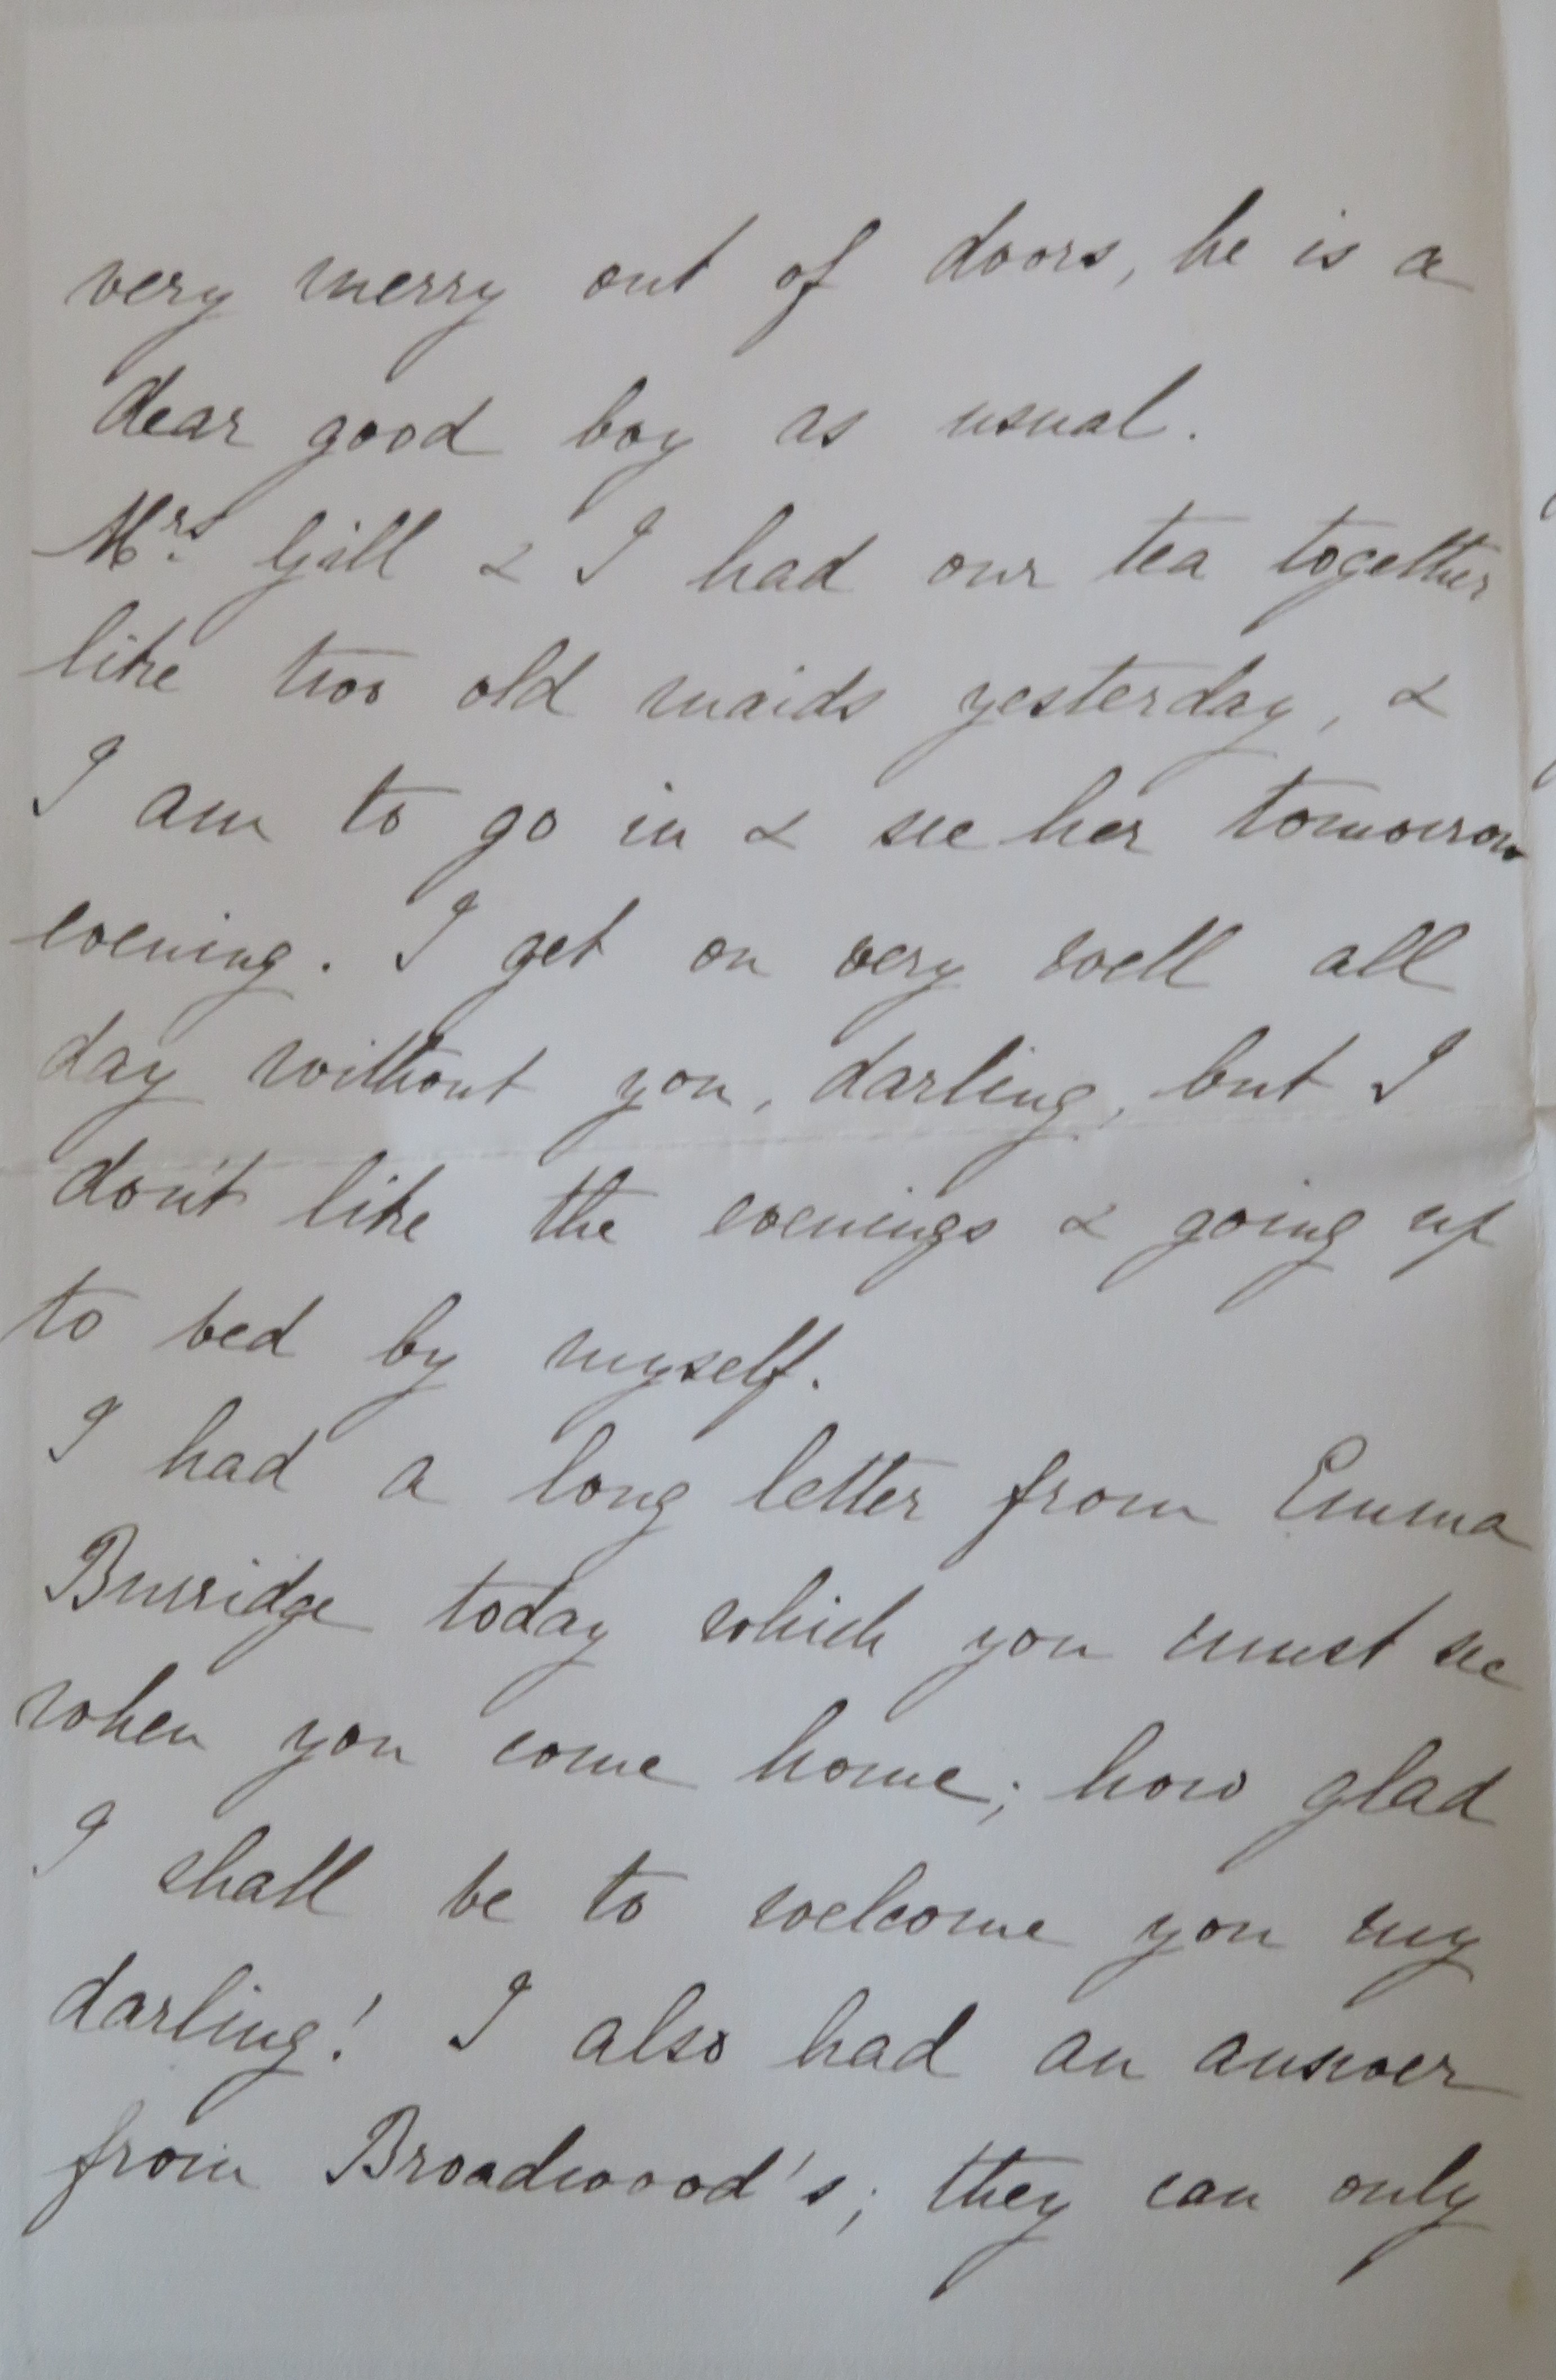 very merry out of doors, he is a
dear good boy as usual.
Mrs. Gill & I had our tea together
like two old maids yesterday, &
I am to go in & see her tomorrow
evening. I get on very well all
day without you, darling, but I
don't like the evenings & going up
to bed by myself.
I had a long letter from Emma
Burridge today which you must see
when you come home; how glad
I shall be to welcome you my
darling! I also had an answer
from Broadwood's; they can only